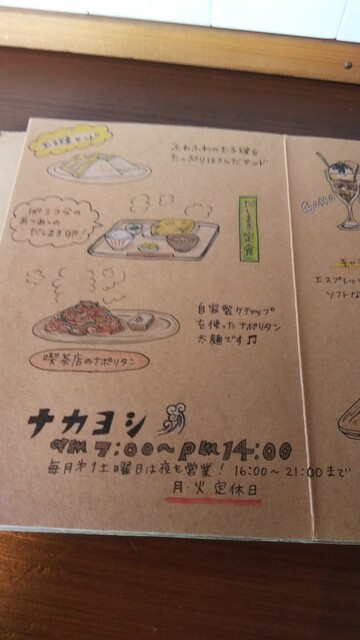 たま焼サンド
ふわふわのたま焼を
たっぷりはさんだサンド
卵3コ分の
あつあつの
だしまき卵!
だしまき定食
自家製ケチャップ
を使ったナポリタン
太麺です♫
喫茶店のナポリタン
ナカヨシ
am 7:00~pm14:00
毎月第1土曜日は夜も営業! 16:00~21:00まで
月・火 定休日
エスプレッ
ソフトな